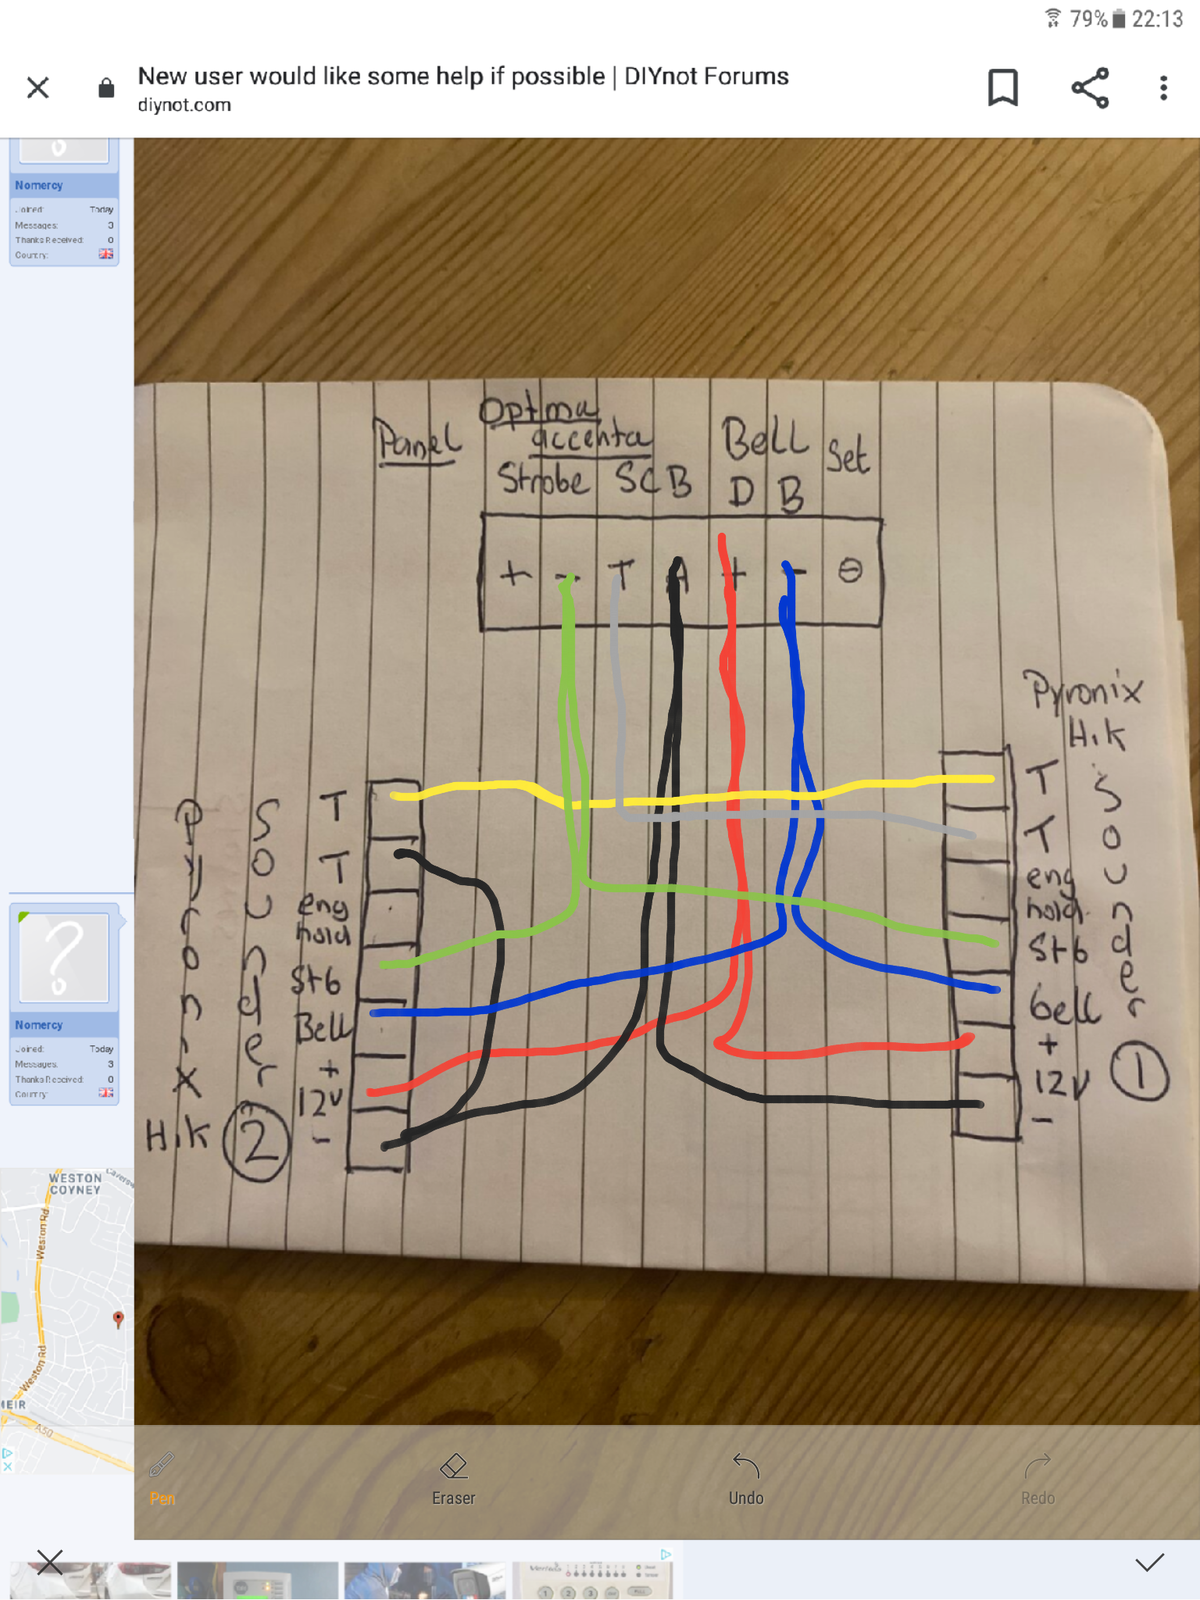 79% 22:13
New user would like some help if possible | DIYnot Forums
diynot.com
Nomercy
Joined: Today
Messages: 3
Thanks Received: 0
Country:
Panel
Optima
accenta
Strobe SCB
Bell
D B
Set
+ - T A + - ⊖
Pyronix
Hik
Sounder
1
T
T
eng
hold
Stb
bell
+
12V
-
Pyronix
Hik
Sounder
2
T
T
eng
hold
Stb
Bell
+
12V
-
Nomercy
Joined: Today
Messages: 3
Thanks Received: 0
Country:
WESTON
COYNEY
Weston Rd
Weston Rd
MEIR
A50
Pen
Eraser
Undo
Redo